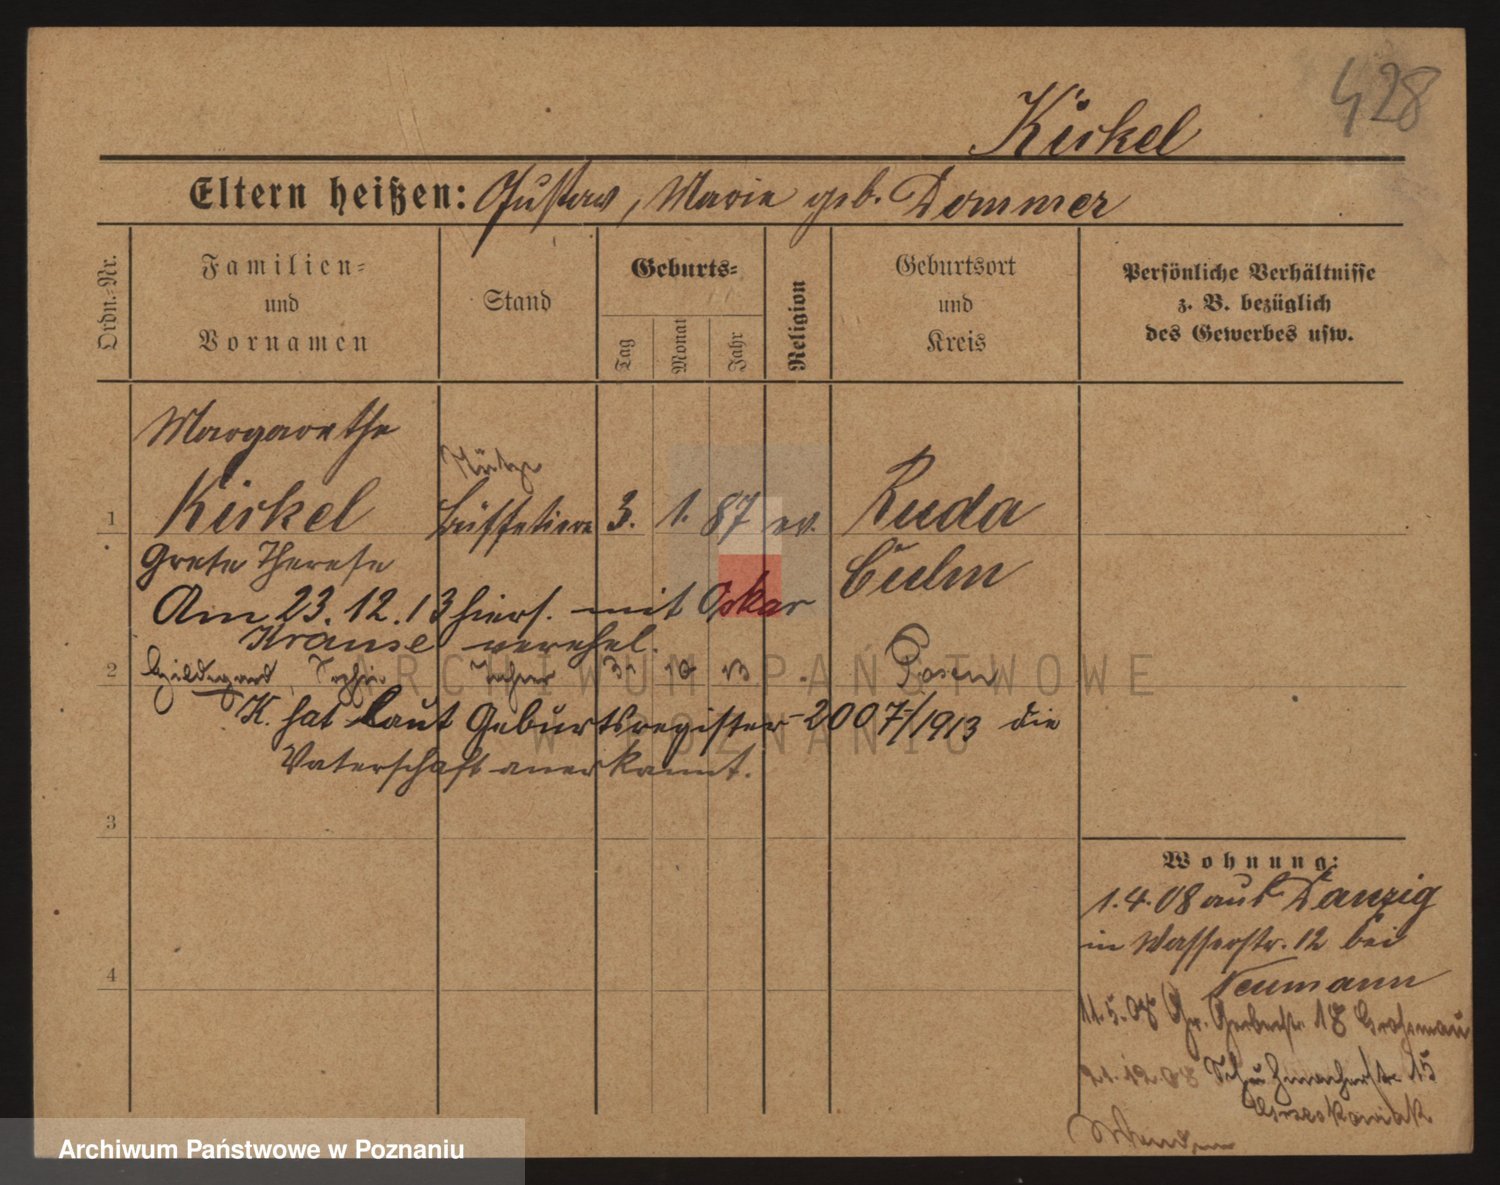 428
Kirkel
Eltern heißen: Gustav, Marie geb. Dommer
Ordn.-Nr.
Familien- und Vornamen
Stand
Geburts-
Tag
Monat
Jahr
Religion
Geburtsort und Kreis
Persönliche Verhältnisse
z. B. bezüglich
des Gewerbes usw.
Margarethe
Stütze
1 Kirkel Büffetiere 3. 1. 87 ev. Ruda
Grete Therese Culm
Am 23.12.13 hiers. mit Oskar
Krause verehel.
2 Hildegard Tochter 10 13 Posen
K. hat laut Geburtsregister 2007/1913 die
Vaterschaft anerkannt.
3
4
Wohnung:
1.4.08 aus Danzig
in Wasserstr. 12 bei
Neumann
11.5.08 Gr. Gerberstr. 18
21.12.08 Schuhmacherstr. 15
Grzeskowiak
ARCHIWUM PAŃSTWOWE
W POZNANIU
Archiwum Państwowe w Poznaniu